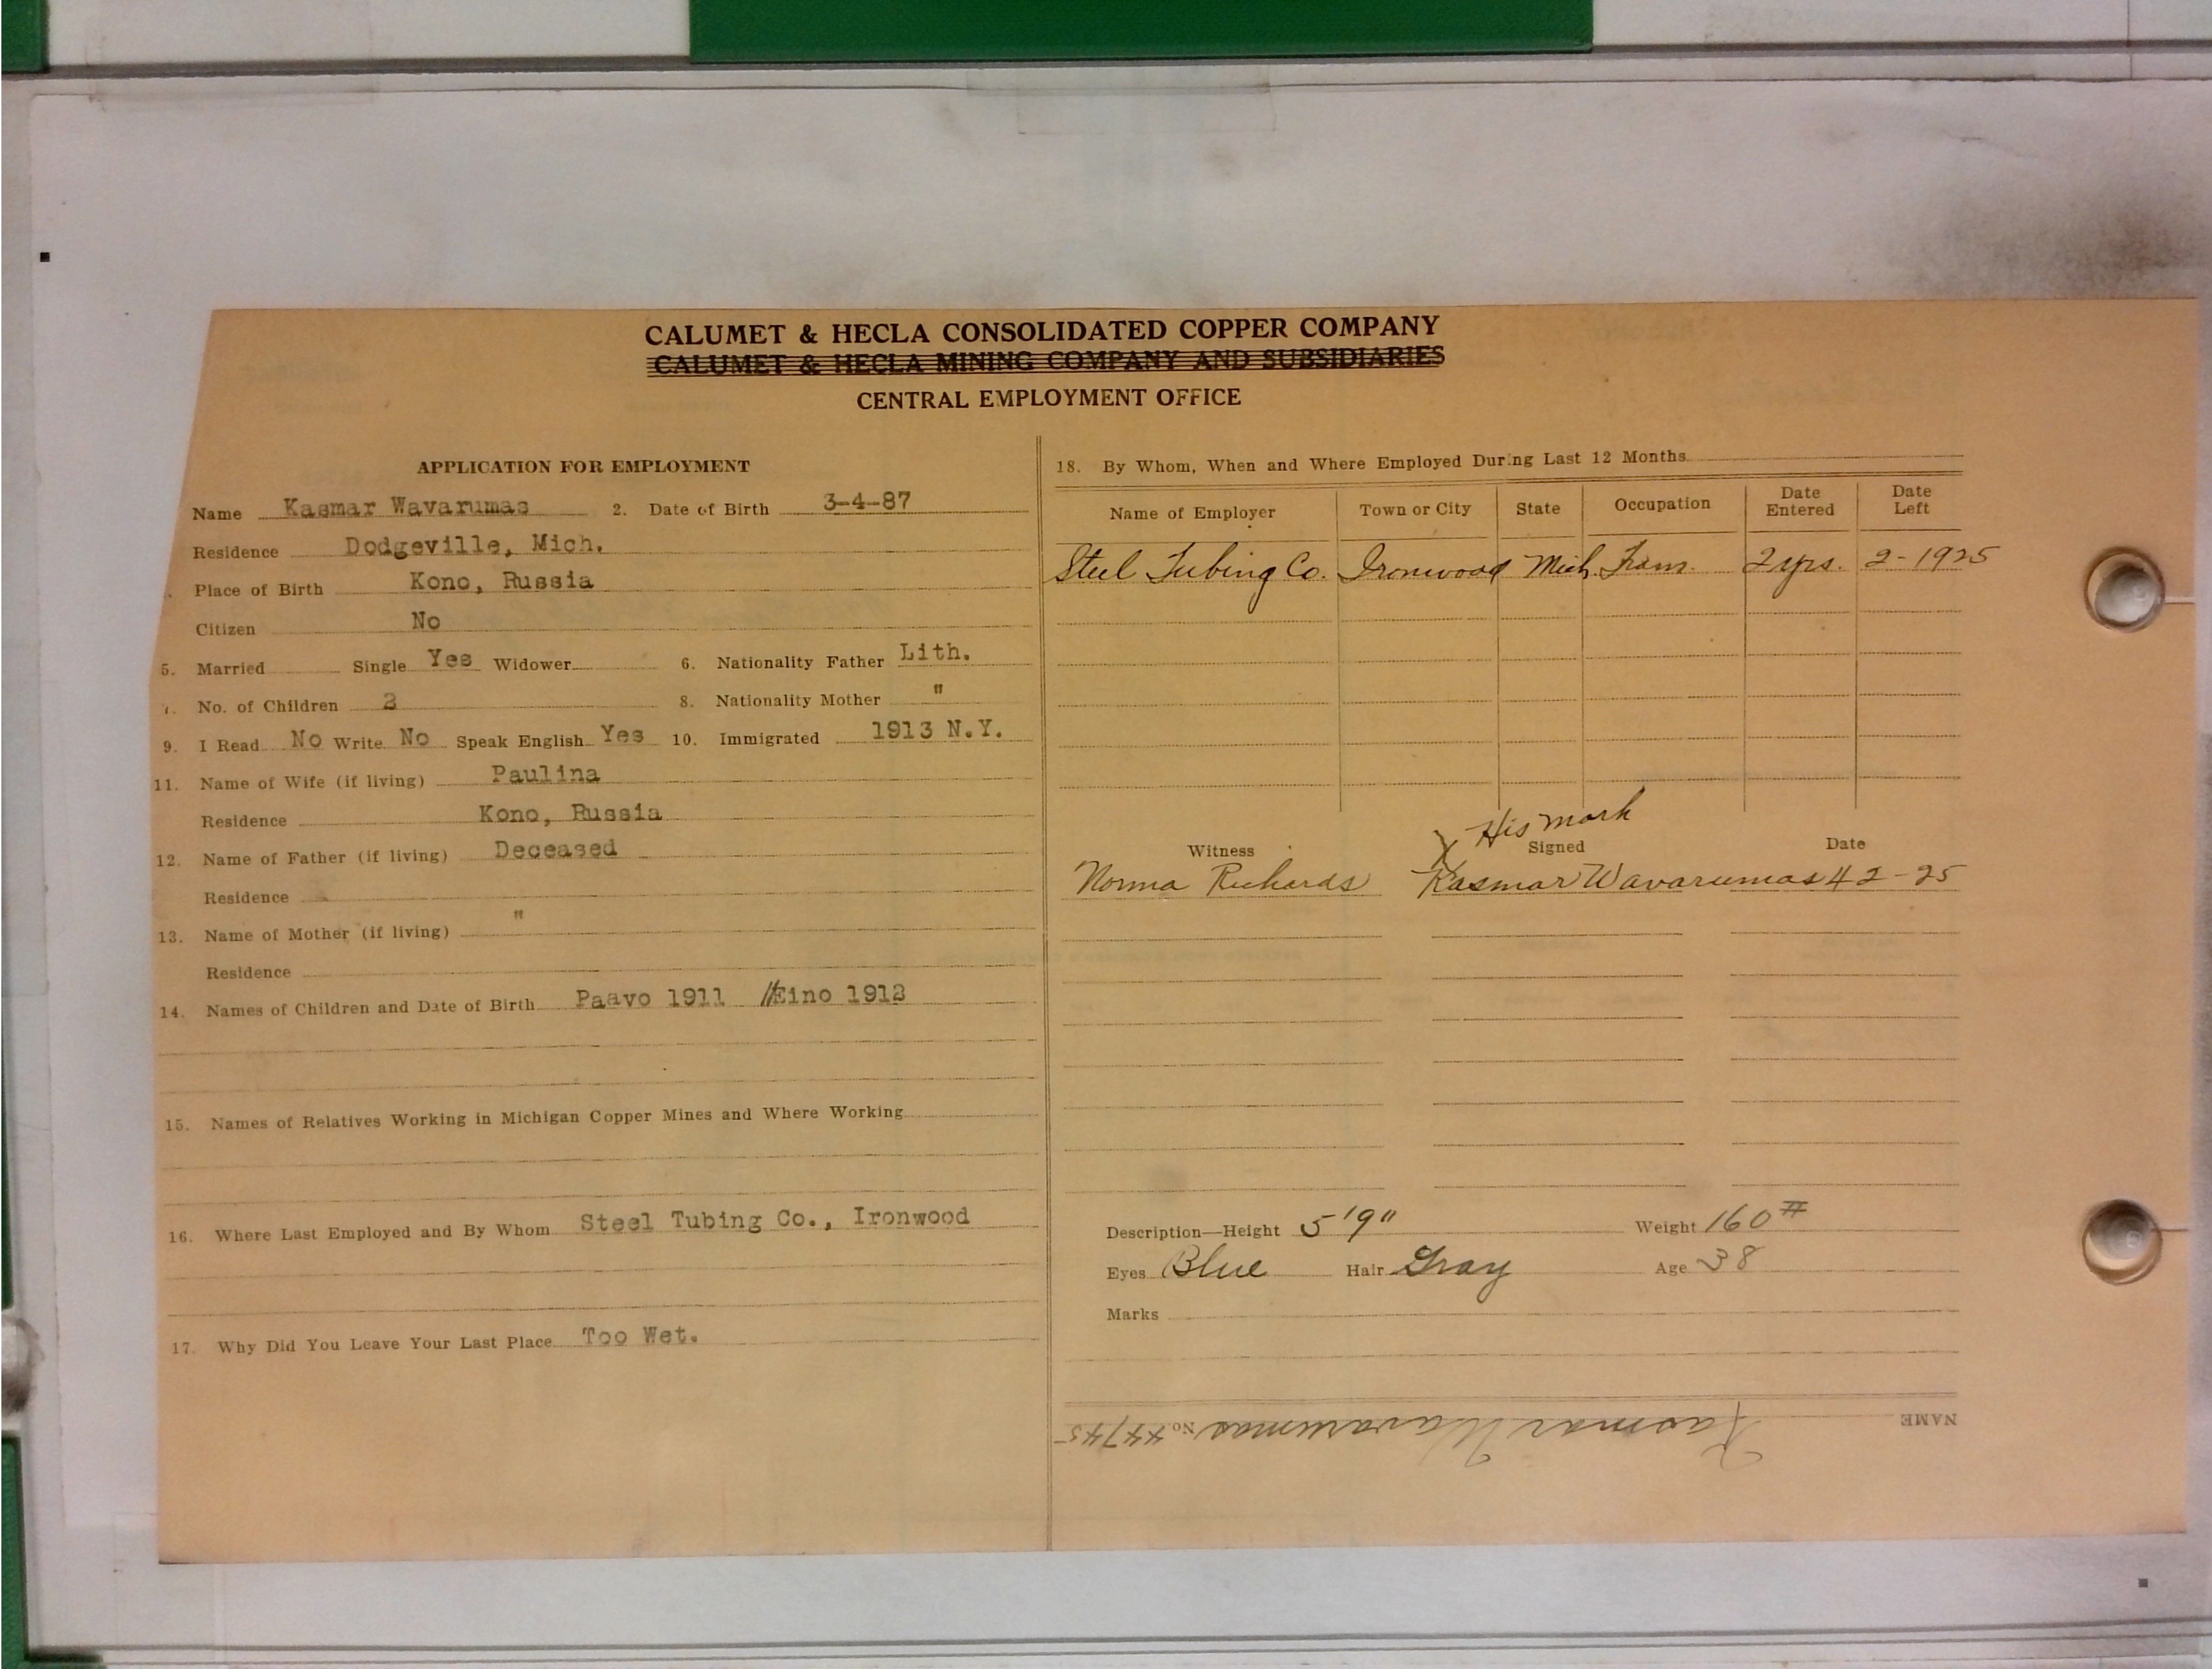 CALUMET & HECLA CONSOLIDATED COPPER COMPANY
CALUMET & HECLA MINING COMPANY AND SUBSIDIARIES
CENTRAL EMPLOYMENT OFFICE
APPLICATION FOR EMPLOYMENT
Name Kasmar Wavarumas 2. Date of Birth 3-4-87
Residence Dodgeville, Mich.
Place of Birth Kono, Russia
Citizen No
5. Married Single Yes Widower 6. Nationality Father Lith.
7. No. of Children 2 8. Nationality Mother "
9. I Read No Write No Speak English Yes 10. Immigrated 1913 N.Y.
11. Name of Wife (if living) Paulina
Residence Kono, Russia
12. Name of Father (if living) Deceased
Residence
13. Name of Mother (if living) "
Residence
14. Names of Children and Date of Birth Paavo 1911 //Eino 1912
15. Names of Relatives Working in Michigan Copper Mines and Where Working
16. Where Last Employed and By Whom Steel Tubing Co., Ironwood
17. Why Did You Leave Your Last Place Too Wet.
18. By Whom, When and Where Employed During Last 12 Months
Name of Employer Town or City State Occupation Date Entered Date Left
Steel Tubing Co. Ironwood Mich. Tram. 2 yrs. 2-1925
X His mark
Witness Signed Date
Norma Richards Kasmar Wavarumas 4 2-25
Description—Height 5'9" Weight 160#
Eyes Blue Hair Gray Age 38
Marks
NAME Kasmar Wavarumas No. 44745